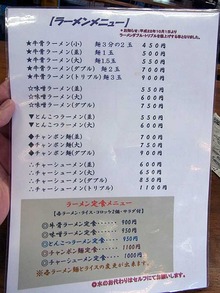 【ラーメンメニュー】
★お知らせ:平成25年10月1日より
ラーメンダブル・トリプルを値上げする事となりました。
◆牛骨ラーメン(小) 麺3分の2玉 450円
★牛骨ラーメン(並) 麺1玉 500円
★牛骨ラーメン(大) 麺1.5玉 550円
★牛骨ラーメン(ダブル) 麺2玉 700円
★牛骨ラーメン(トリプル)麺3玉 900円
☆味噌ラーメン(並) 550円
☆味噌ラーメン(大) 600円
☆味噌ラーメン(ダブル) 750円
▼とんこつラーメン(並) 550円
▼とんこつラーメン(大) 600円
◆チャンポン麺(並) 600円
◆チャンポン麺(大) 650円
◆チャンポン麺(ダブル) 900円
∴チャーシューメン(並) 600円
∴チャーシューメン(大) 650円
∴チャーシューメン(ダブル) 850円
∴チャーシューメン(トリプル) 1100円
ラーメン定食メニュー
【各ラーメン・ライス・コロッケ2個・サラダ付】
◎牛骨ラーメン定食 900円
◎味噌ラーメン定食 950円
◎とんこつラーメン定食 950円
◎チャンポン麺定食 1100円
◎チャーシューメン定食 1000円
※各ラーメン麺とライスの変更が出来ます。
◎水のお代わりはセルフにてお願いします。